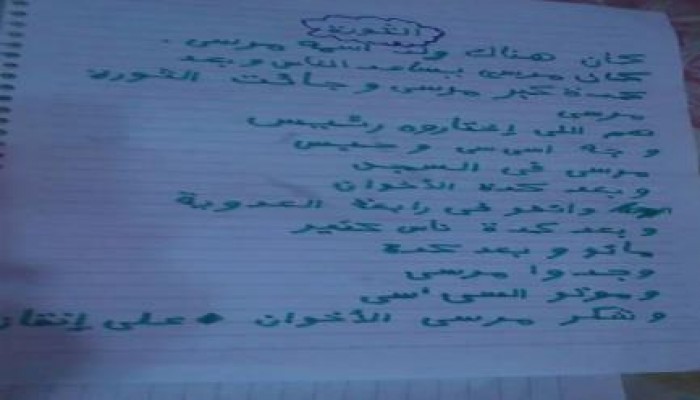 الثورة
كان هناك ولد اسمه مرسى .
كان مرسى بيساعد الناس وبعد
كدة كبر مرسى وجائت الثورة
مرسى
هم اللى إختاروه رئييس
وجه اسى سى وحبس
مرسى فى السجن
وبعد كدة الأخوان
واتحو فى رابعة العدوية
وبعد كدة ناس كتير
ماتو وبعد كدة
وجدوا مرسى
وموتو السى سى
وشكر مرسى الأخوان على إنقاذ